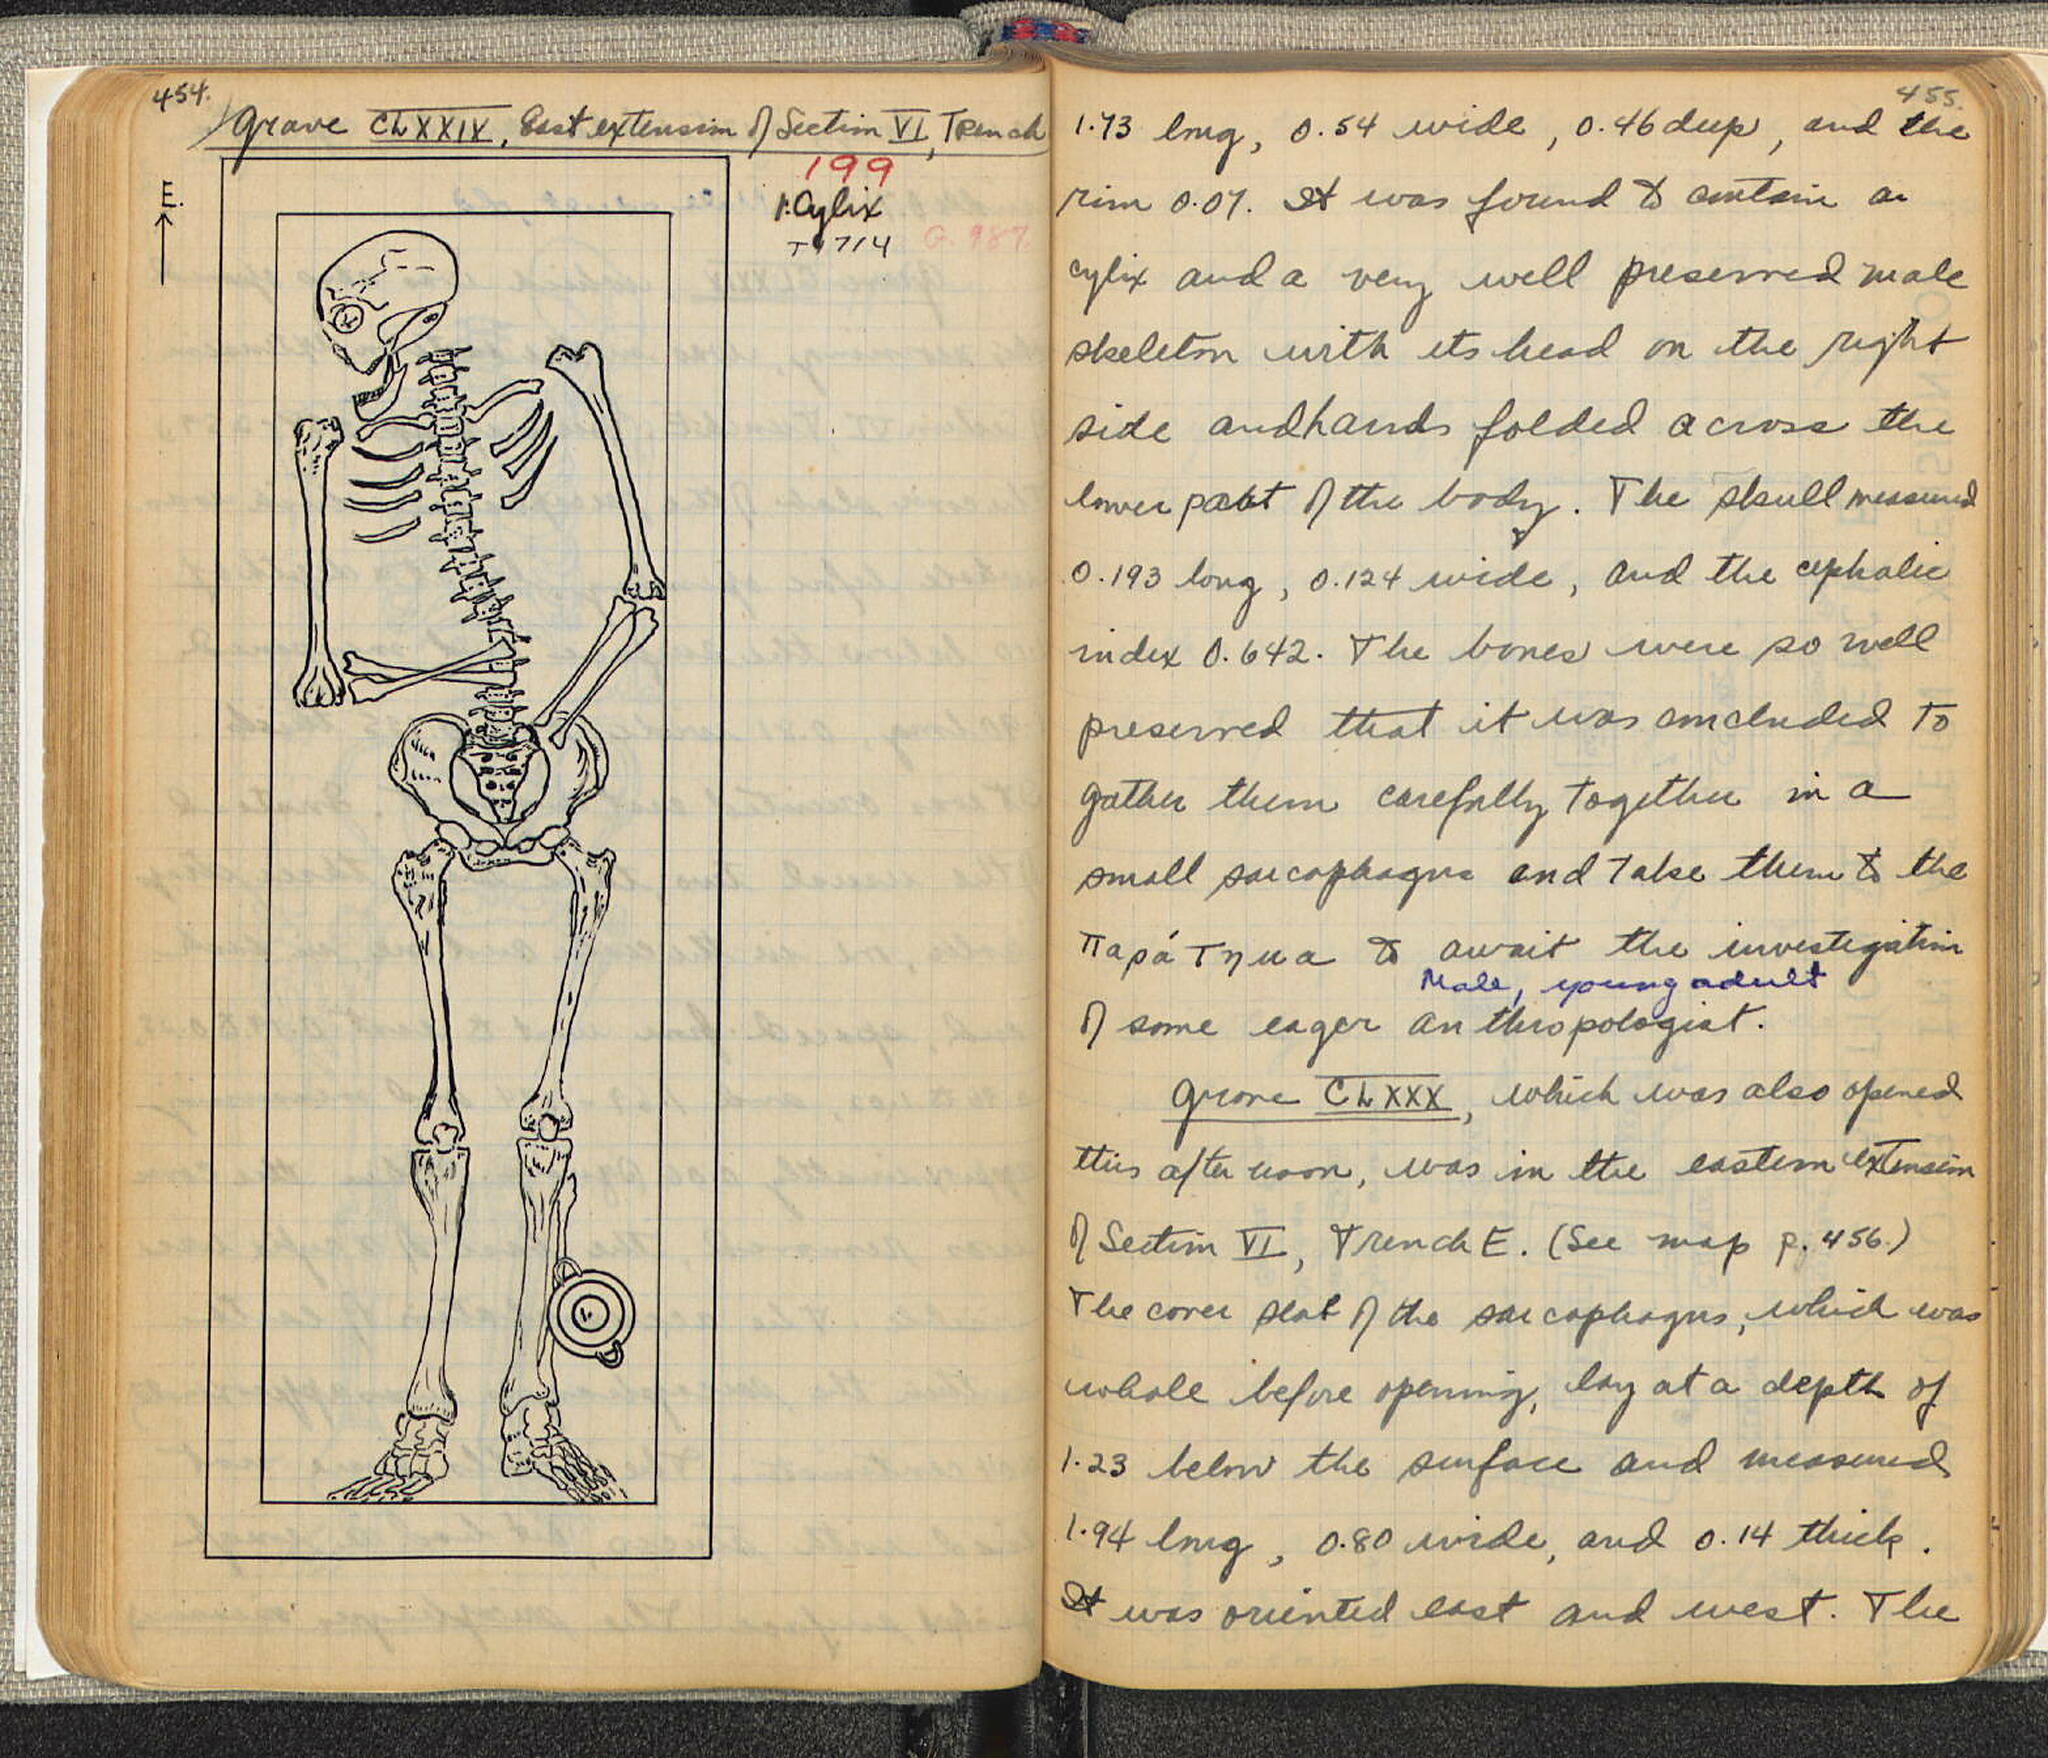 454.
Grave CLXXIX, East extension of Section VI, Trench
199
1. Cylix
T 1714
G. 987.
E.
455.
1.73 long, 0.54 wide, 0.46 deep, and the
rim 0.07. It was found to contain a
cylix and a very well preserved male
skeleton with its head on the right
side and hands folded across the
lower part of the body. The skull measured
0.193 long, 0.124 wide, and the cephalic
index 0.642. The bones were so well
preserved that it was concluded to
gather them carefully together in a
small sarcophagus and take them to the
παράτημα to await the investigation
Male, young adult
of some eager anthropologist.
Grave CLXXX, which was also opened
this afternoon, was in the eastern extension
of Section VI, Trench E. (See map p. 456.)
The cover slab of the sarcophagus, which was
whole before opening, lay at a depth of
1.23 below the surface and measured
1.94 long, 0.80 wide, and 0.14 thick.
It was oriented east and west. The